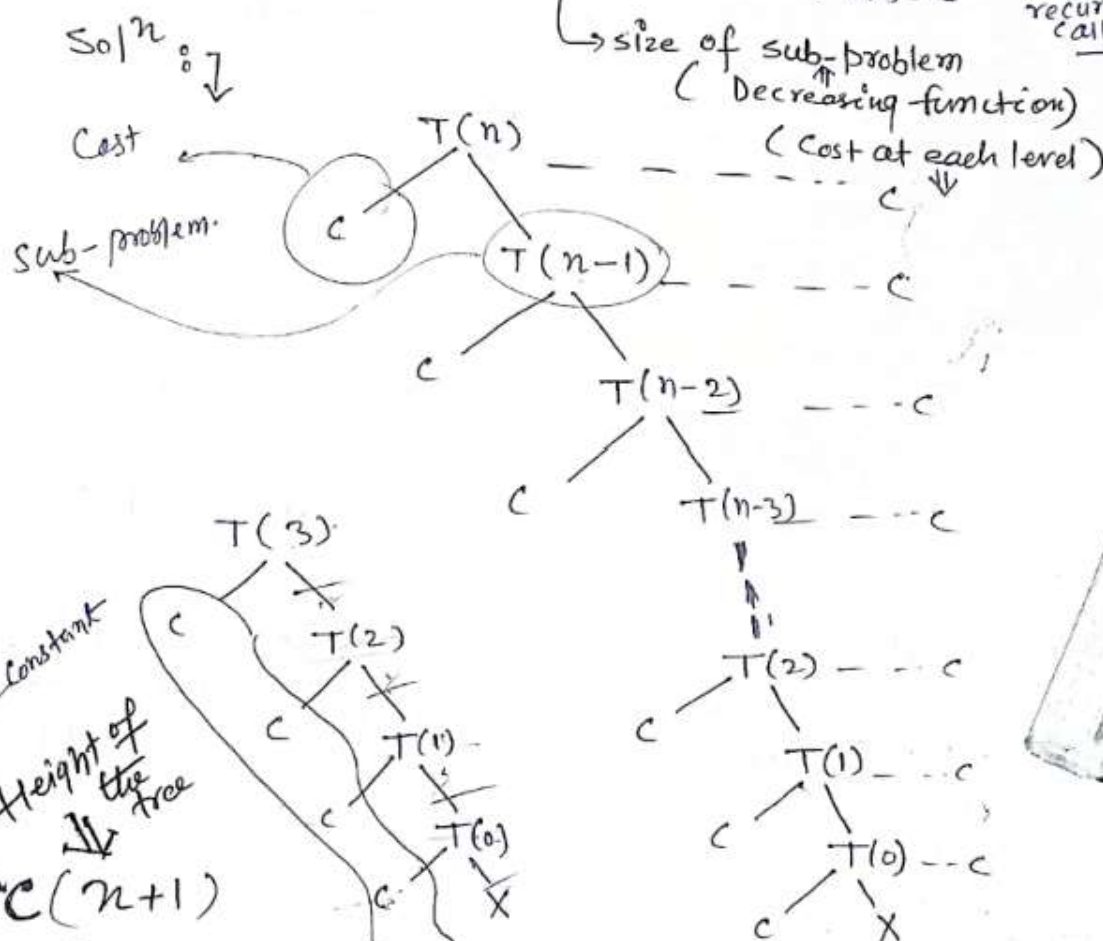 recur
call
Solⁿ :
↳ size of sub-problem
( Decreasing function)
( Cost at each level)
Cost
T(n)
C
C
sub-problem.
T(n-1)
C
C
T(n-2)
C
C
T(n-3)
C
T(3)
C
T(2)
C
T(2)
C
C
T(1)
C
T(1)
C
C
T(0)
C
T(0)
C
C
X
C
X
Constant
Height of
the
tree
C(n+1)